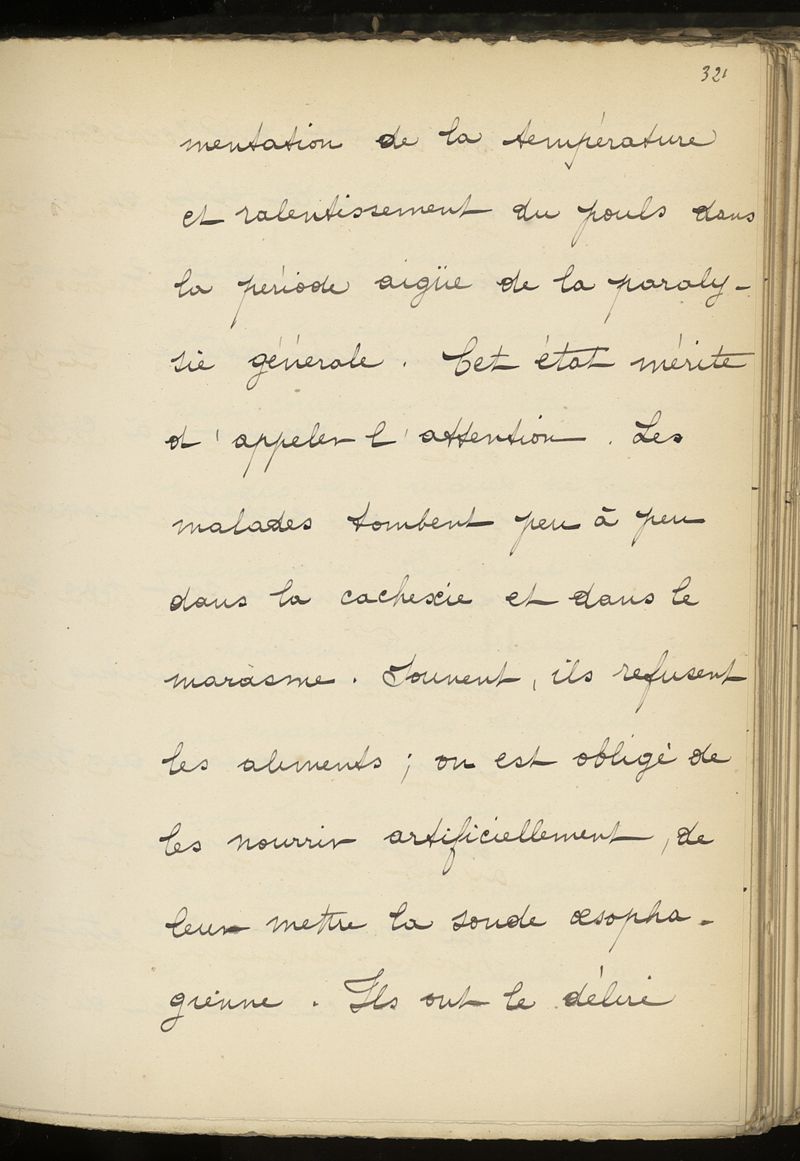 321
mentation de la température
et ralentissement du pouls dans
la période aigüe de la paraly-
sie générale. Cet état mérite
d'appeler l'attention. Les
malades tombent peu à peu
dans la cachexie et dans le
marasme. Souvent, ils refusent
les aliments; on est obligé de
les nourrir artificiellement, de
leur mettre la sonde œsopha-
gienne. Ils ont le délire